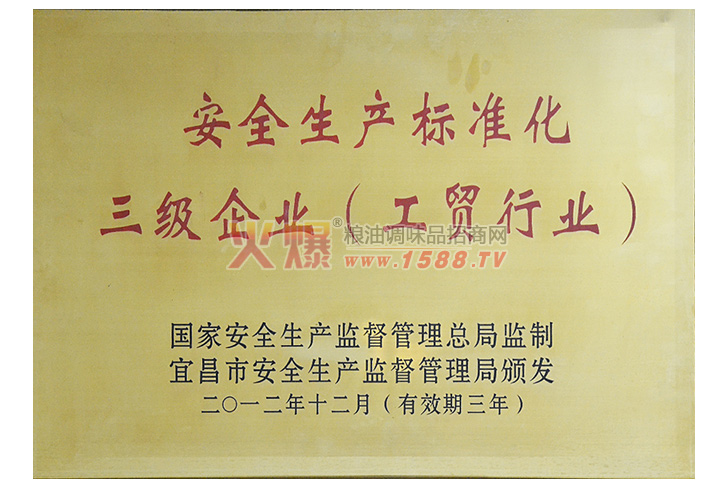 安全生产标准化
三级企业（工贸行业）
火爆®粮油调味品招商网
www.1588.TV
国家安全生产监督管理总局监制
宜昌市安全生产监督管理局颁发
二〇一二年十二月（有效期三年）